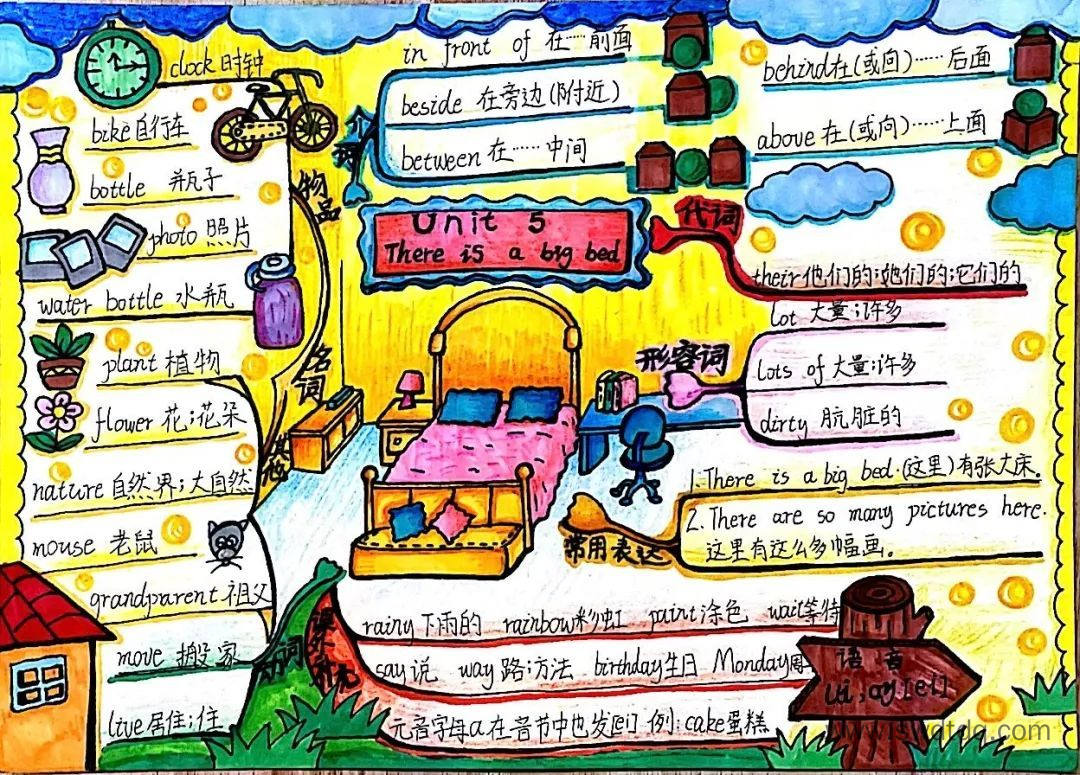 clock 时钟
bike 自行车
bottle 瓶子
photo 照片
water bottle 水瓶
plant 植物
flower 花;花朵
nature 自然界;大自然
mouse 老鼠
grandparent 祖父
move 搬家
live 居住;住
物品
名词
其他
动词
介词
in front of 在……前面
beside 在旁边(附近)
between 在……中间
behind 在(或向)……后面
above 在(或向)……上面
Unit 5
There is a big bed
代词
their 他们的;她们的;它们的
形容词
lot 大量;许多
lots of 大量;许多
dirty 肮脏的
常用表达
1. There is a big bed. (这里)有张大床。
2. There are so many pictures here.
这里有这么多幅画。
课外补充
rainy 下雨的 rainbow 彩虹 paint 涂色 wait 等待
say 说 way 路;方法 birthday 生日 Monday 周一
元音字母a在音节中也发[ei] 例:cake 蛋糕
语音
ai, ay [ei]